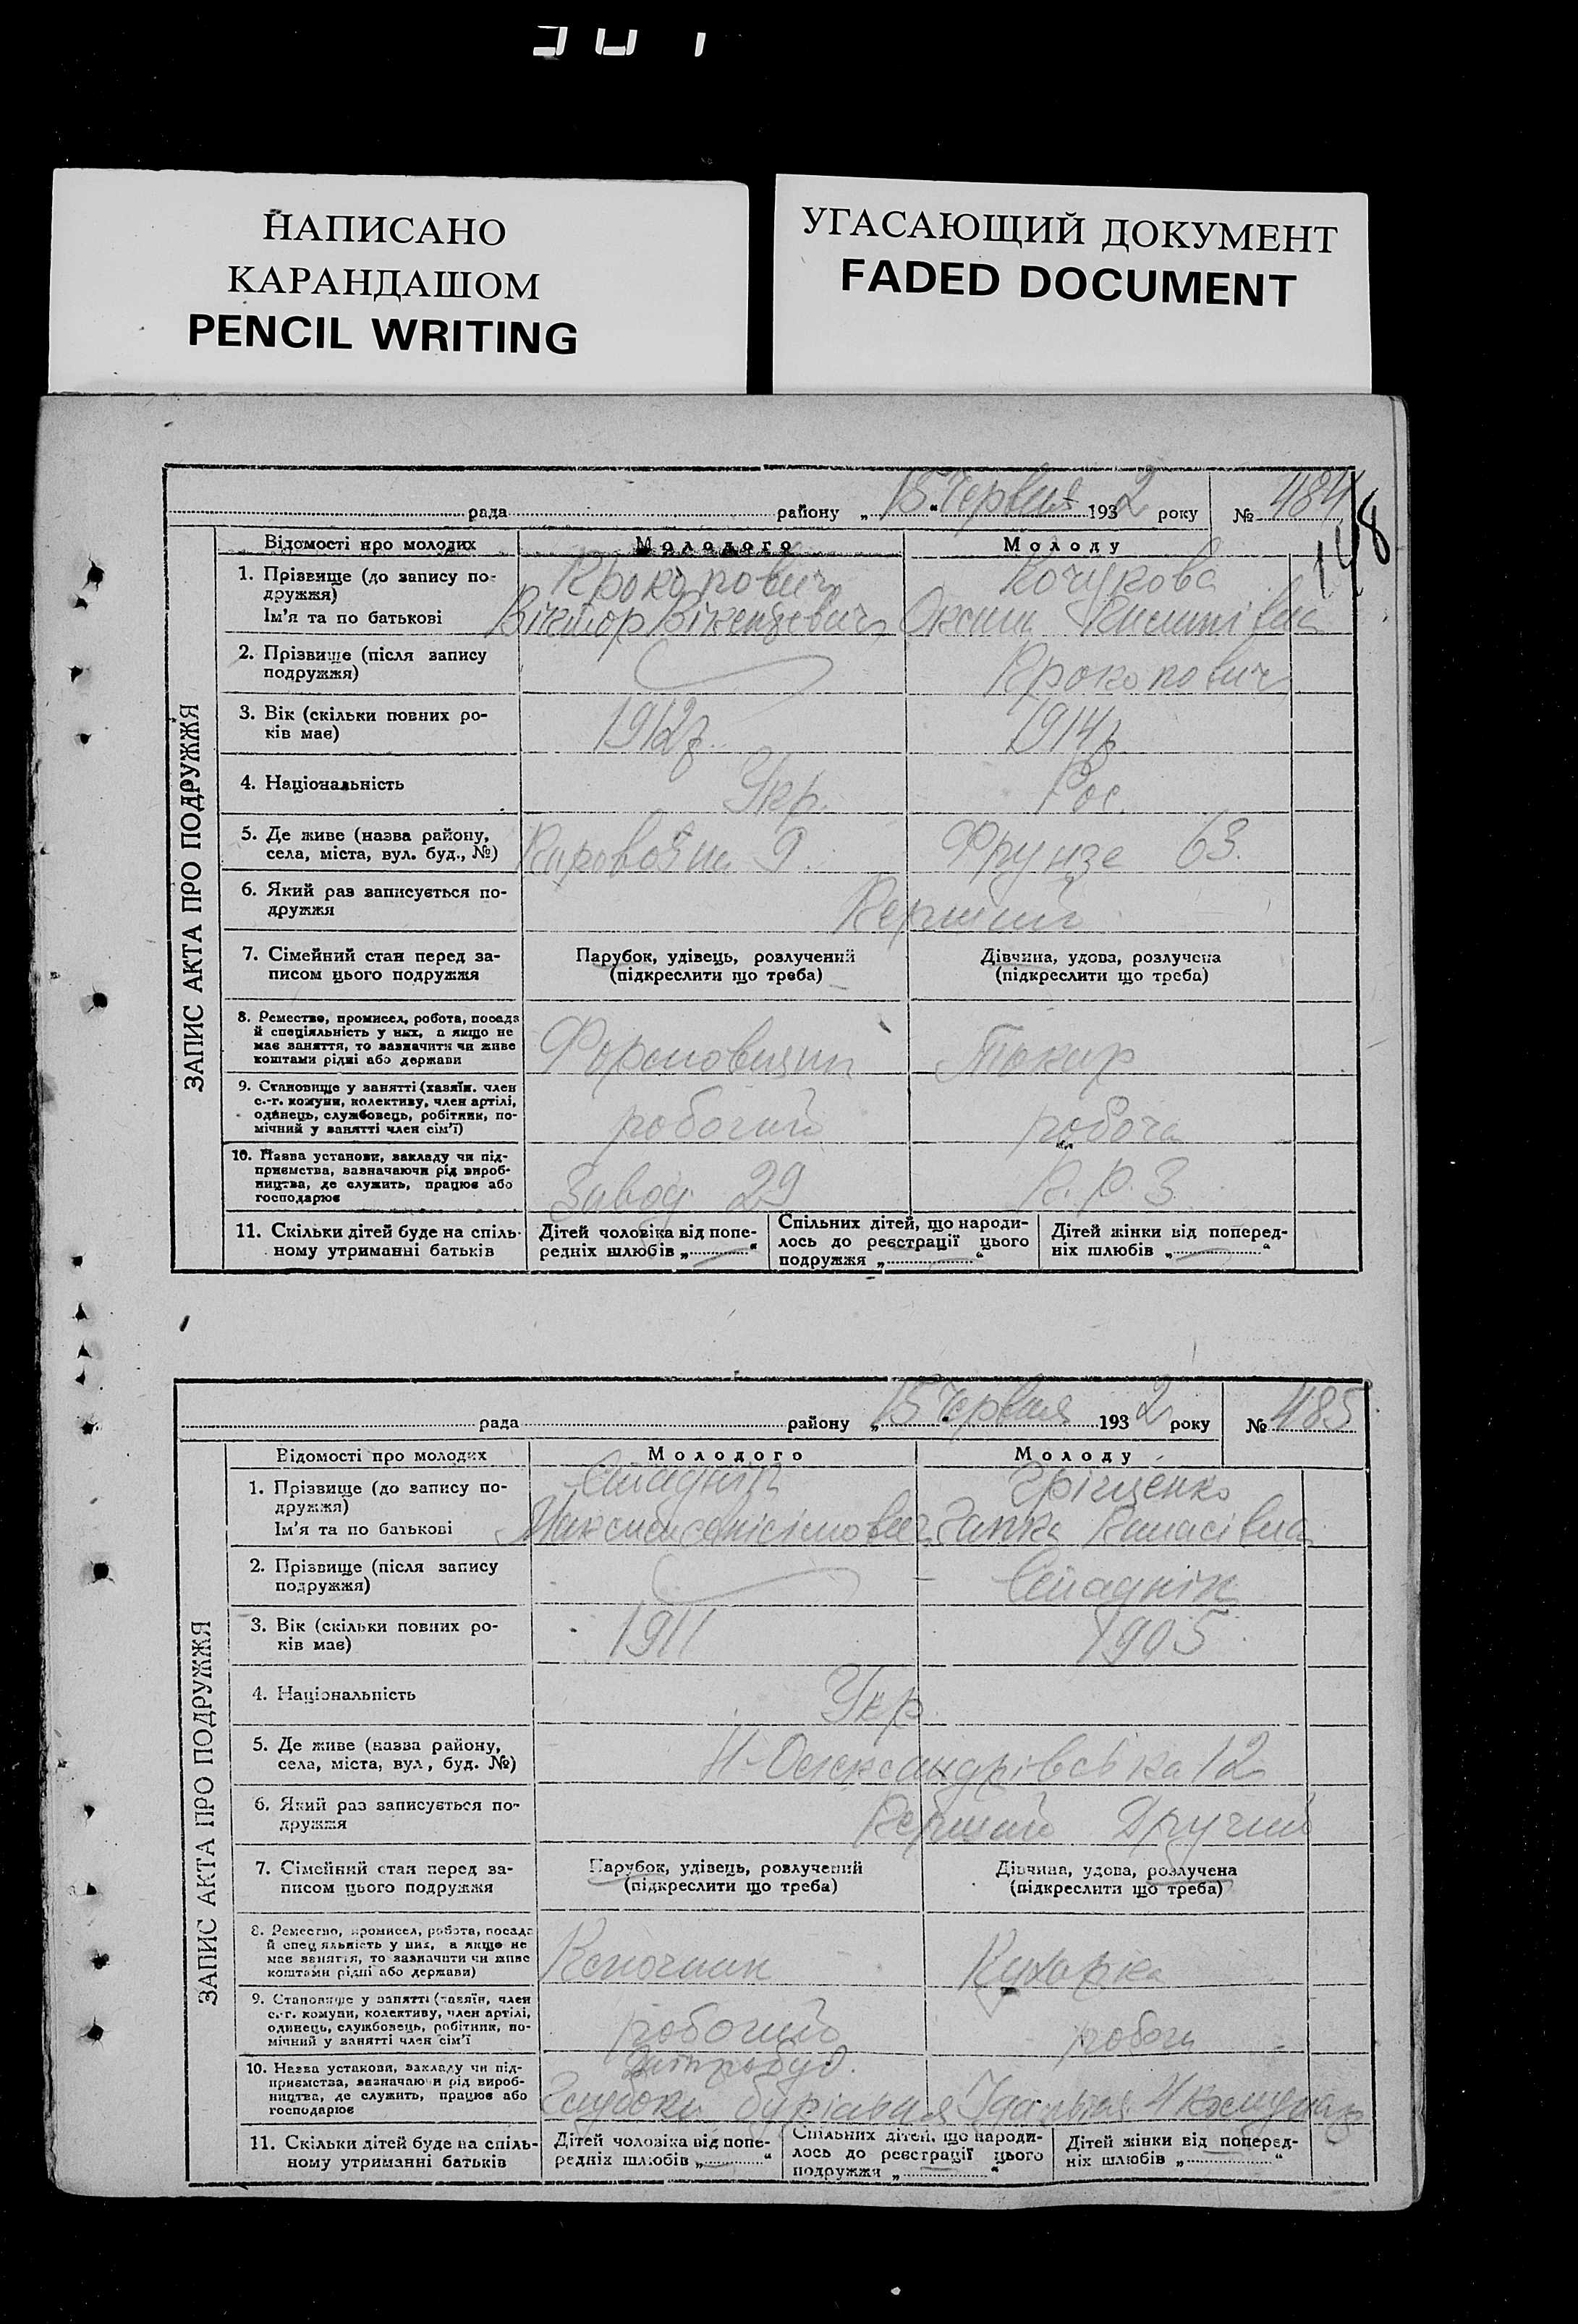 НАПИСАНО
КАРАНДАШОМ
PENCIL WRITING
УГАСАЮЩИЙ ДОКУМЕНТ
FADED DOCUMENT
рада району „15“ Червня 1932 року № 484
148
ЗАПИС АКТА ПРО ПОДРУЖЖЯ
Відомості про молодих Молодого Молоду
1. Прізвище (до запису по-
дружжя)
Прокопович Кочукова
Ім'я та по батькові Віктор Вікентєвич Оксана
2. Прізвище (після запису
подружжя)
Прокопович
3. Вік (скільки повних ро-
ків має)
1912р. 1914р
4. Національність Укр. Рос.
5. Де живе (назва району,
села, міста, вул. буд., №)
9. Фрунзе 63.
6. Який раз записується по-
дружжя
Перший
7. Сімейний стан перед за-
писом цього подружжя
Парубок, удівець, розлучений
(підкреслити що треба)
Дівчина, удова, розлучена
(підкреслити що треба)
8. Ремество, промисел, робота, посада
й спеціяльність у них, а якщо не
має заняття, то зазначити чи живе
коштами рідні або держави
Формовщик Токар
9. Становище у занятті (хазяїн, член
с.-г. комуни, колективу, член артілі,
одинець, службовець, робітник, по-
мічний у занятті член сім'ї)
робочий робоча
10. Назва установи, закладу чи під-
приємства, зазначаючи рід вироб-
ництва, де служить, працює або
господарює
Завод 29 П. Р. З.
11. Скільки дітей буде на спіль-
ному утриманні батьків
Дітей чоловіка від попе-
редніх шлюбів „ — “
Спільних дітей, що народи-
лось до реєстрації цього
подружжя „ — “
Дітей жінки від поперед-
ніх шлюбів „ — “
рада району „15“ Червня 1932 року № 485
ЗАПИС АКТА ПРО ПОДРУЖЖЯ
Відомості про молодих Молодого Молоду
1. Прізвище (до запису по-
дружжя)
Гріщенко
Ім'я та по батькові Гапка Панасівна
2. Прізвище (після запису
подружжя)
3. Вік (скільки повних ро-
ків має)
1911 1905
4. Національність Укр
5. Де живе (назва району,
села, міста, вул, буд. №)
Н-Олександрівська 12
6. Який раз записується по-
дружжя
Перший Другий
7. Сімейний стан перед за-
писом цього подружжя
Парубок, удівець, розлучений
(підкреслити що треба)
Дівчина, удова, розлучена
(підкреслити що треба)
8. Ремество, промисел, робота, посада
й спеціяльність у них, а якщо не
має заняття, то зазначити чи живе
коштами рідні або держави)
Кухарка
9. Становище у занятті (хазяїн, член
с.-г. комуни, колективу, член артілі,
одинець, службовець, робітник, по-
мічний у занятті член сім'ї
робочий робоча
10. Назва установи, закладу чи під-
приємства, зазначаючи рід вироб-
ництва, де служить, працює або
господарює
Дніпробуд.
Їдальня
11. Скільки дітей буде на спіль-
ному утриманні батьків
Дітей чоловіка від попе-
редніх шлюбів „ — “
Спільних дітей, що народи-
лось до реєстрації цього
подружжя „ — “
Дітей жінки від поперед-
ніх шлюбів „ — “